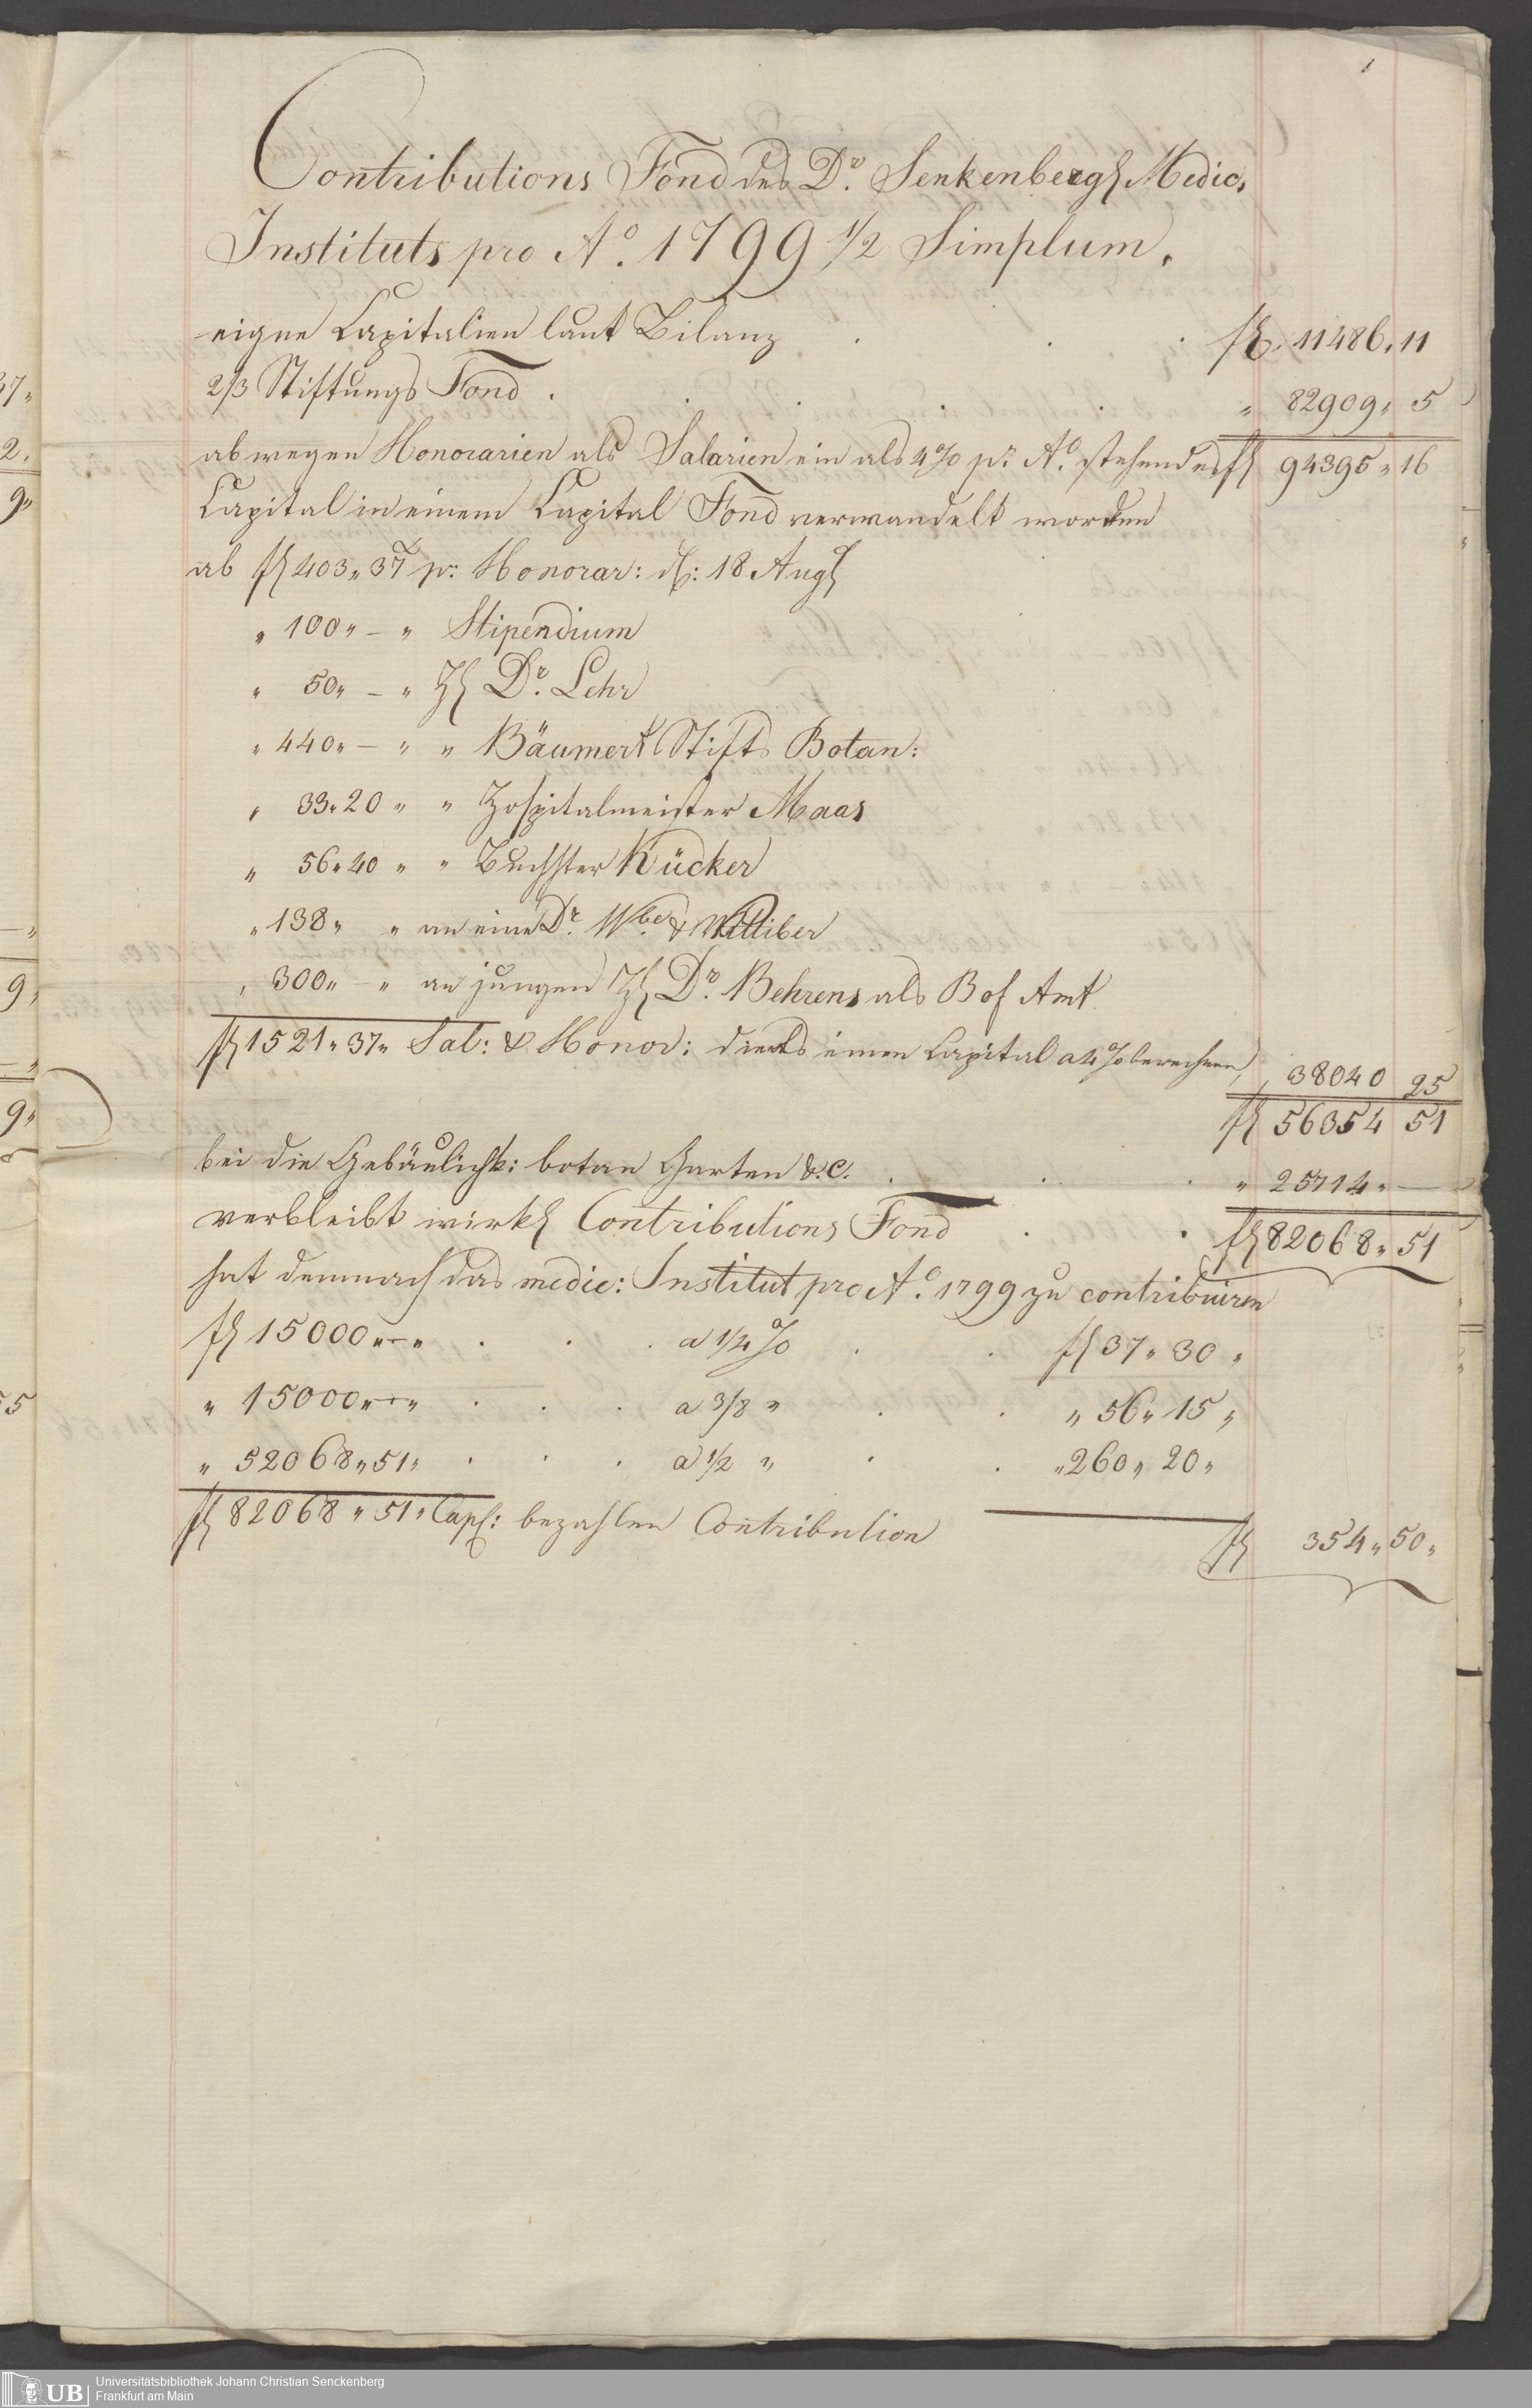 1
Contributions Fond des Dr. Senkenbergl Medic.
Instituts pro Ao. 1799 1/2 Simplum.
eigne Capitalien laut Bilanz . . . fl. 11486 „ 11
2/3 Stiftungs Fond . . . . . „ 82909 „ 5
ab wegen Honorarien als Salarien ein als 4 % pr. Ao. stehendes fl 94395 „ 16
Capital in einem Capital Fond verwandelt worden
ab fl 403 „ 37 pr: Honorar: : 18 Augl
„ 100 „ – „ Stipendium
„ 50 „ – „ H Dr. Lehr
„ 440 „ – „ „ Bäumert Stifts Botan:
„ 33 „ 20 „ „ Hospitalmeister Maas
„ 56 „ 40 „ „ Buchhter Kücker
„ 138 „ „ an eine Dr. Wbe &
„ 300 „ – „ an jungen H Dr. Behrens als Amt
fl 1521 „ 37 „ Sal: & Honor: einen Capital a 4 % berechnen, „ 38040 25
fl 56354 51
bei die Gebäulichk: botan Garten &.c. . . . „ 25714 „ —
verbleibt wirkl Contributions Fond . . fl 82068 „ 51
hat demnach das medic: Institut pro Ao. 1799 zu contribuiren
fl 15000 „ – „ . . . a 1/4 % . . fl 37 „ 30 „
„ 15000 „ – „ . . . a 3/8 „ . . „ 56 „ 15 „
„ 52068 „ 51 „ . . . a 1/2 „ . . „ 260 „ 20 „
fl 82068 „ 51 „ Capl: bezahlen Contribution fl 354 „ 50 „
37 „
2 „
9 „
– „
9 „
– „
9 „
55
UB
Universitätsbibliothek Johann Christian Senckenberg
Frankfurt am Main